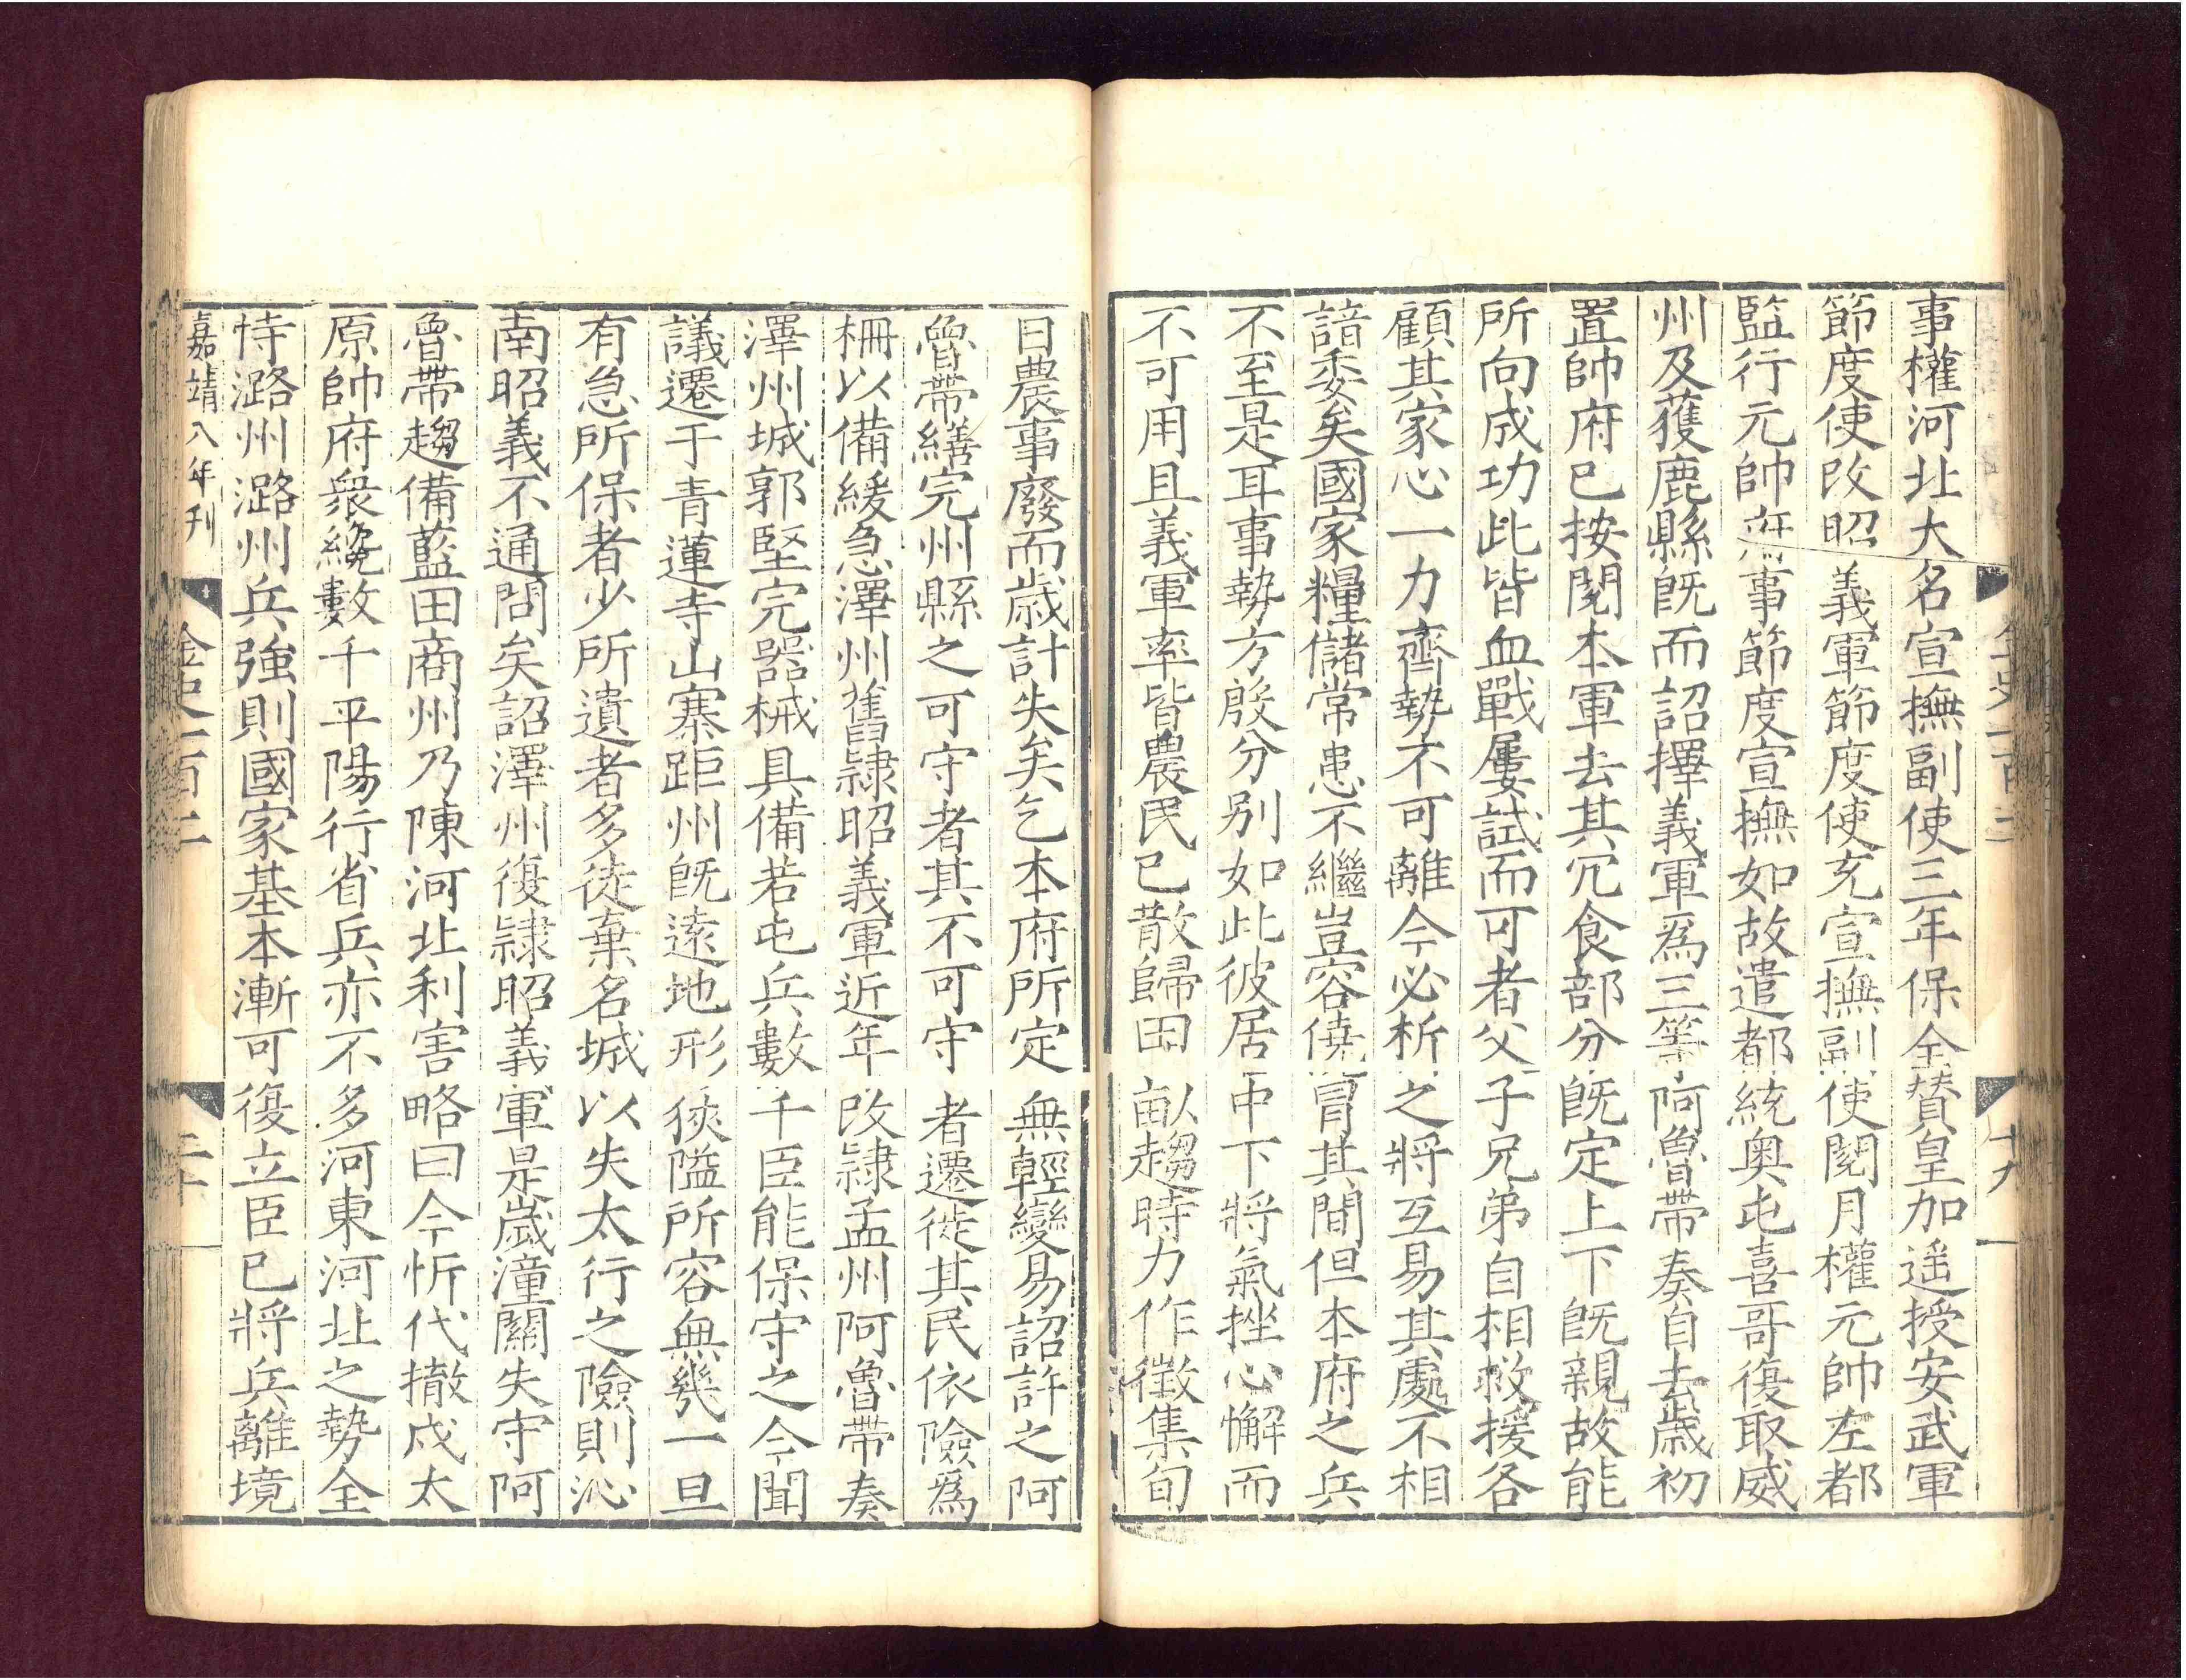 事權河北大名宣撫副使三年保全賛皇加遥授安武軍
節度使改昭義軍節度使充宣撫副使閱月權元帥左都
監行元帥府事節度宣撫如故遣都統奥屯喜哥復取威
州及獲鹿縣既而詔擇義軍爲三等阿魯帶奏自去歳初
置帥府已按閱本軍去其冗食部分既定上下既親故能
所向成功此皆血戰屢試而可者父子兄弟自相救援各
顧其家心一力齊勢不可離今必析之將互易其處不相
諳委矣國家糧儲常患不繼豈容僥冒其間但本府之兵
不至是耳事勢方殷分别如此彼居中下將氣挫心懈而
不可用且義軍率皆農民已散歸田畝趨時力作徵集旬
金史一百三
十九
日農事廢而歳計失矣乞本府所定無輕變易詔許之阿
魯帶繕完州縣之可守者其不可守者遷徙其民依險爲
柵以備緩急澤州舊隷昭義軍近年改隷孟州阿魯帶奏
澤州城郭堅完器械具備若屯兵數千臣能保守之今聞
議遷于青蓮寺山寨距州既逺地形狹隘所容無幾一旦
有急所保者少所遺者多徒棄名城以失太行之險則沁
南昭義不通問矣詔澤州復隷昭義軍是歳潼關失守阿
魯帶趨備藍田商州乃陳河北利害略曰今忻代撤戍太
原帥府衆纔數千平陽行省兵亦不多河東河北之勢全
恃潞州潞州兵強則國家基本漸可復立臣已將兵離境
嘉靖八年刊
金史一百三
二十